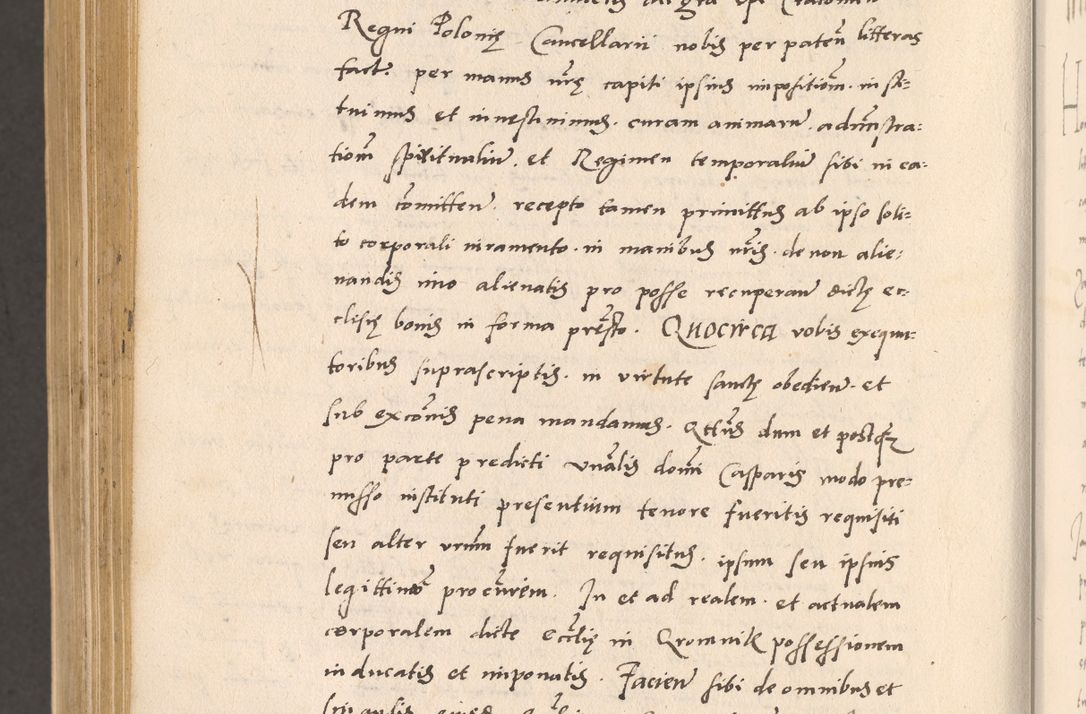 Regni Polonię Cancellarii nobis per paten̄ litteras
fact: per manus nr̄ę capiti ipsius impositiōm. insti=
tuimus et investimimus. curam animarū. admīstra=
tiōm spiritualiū. et Regimen temporaliū sibi in ea=
dem cōmitten̄. recepto tamen primittus ab ipso soli=
to corporali iuramento. in manibus nr̄is. de non alie=
nandis imo alienatis pro posse recuperan̄ dictę ec=
clisię bonis in forma prēsto. Quocirca vobis exequu=
toribus suprascriptis. in virtute sanctę obedien̄. et
sub excōnis pena mandamus. Qtn̄s dum et postq̄
pro parte predicti vn̄alis domī Casparis modo pre=
misso instituti presentium tenore fueritis requisiti
seu alter vrūm fuerit requisitus. ipsum seu ipsius
legittimū procūrēm. In et ad realem. et actualem
corporalem dicte eccl̄ię in Qromnik possessionem
inducatis et imponatis. Facien̄ sibi de omnibus et